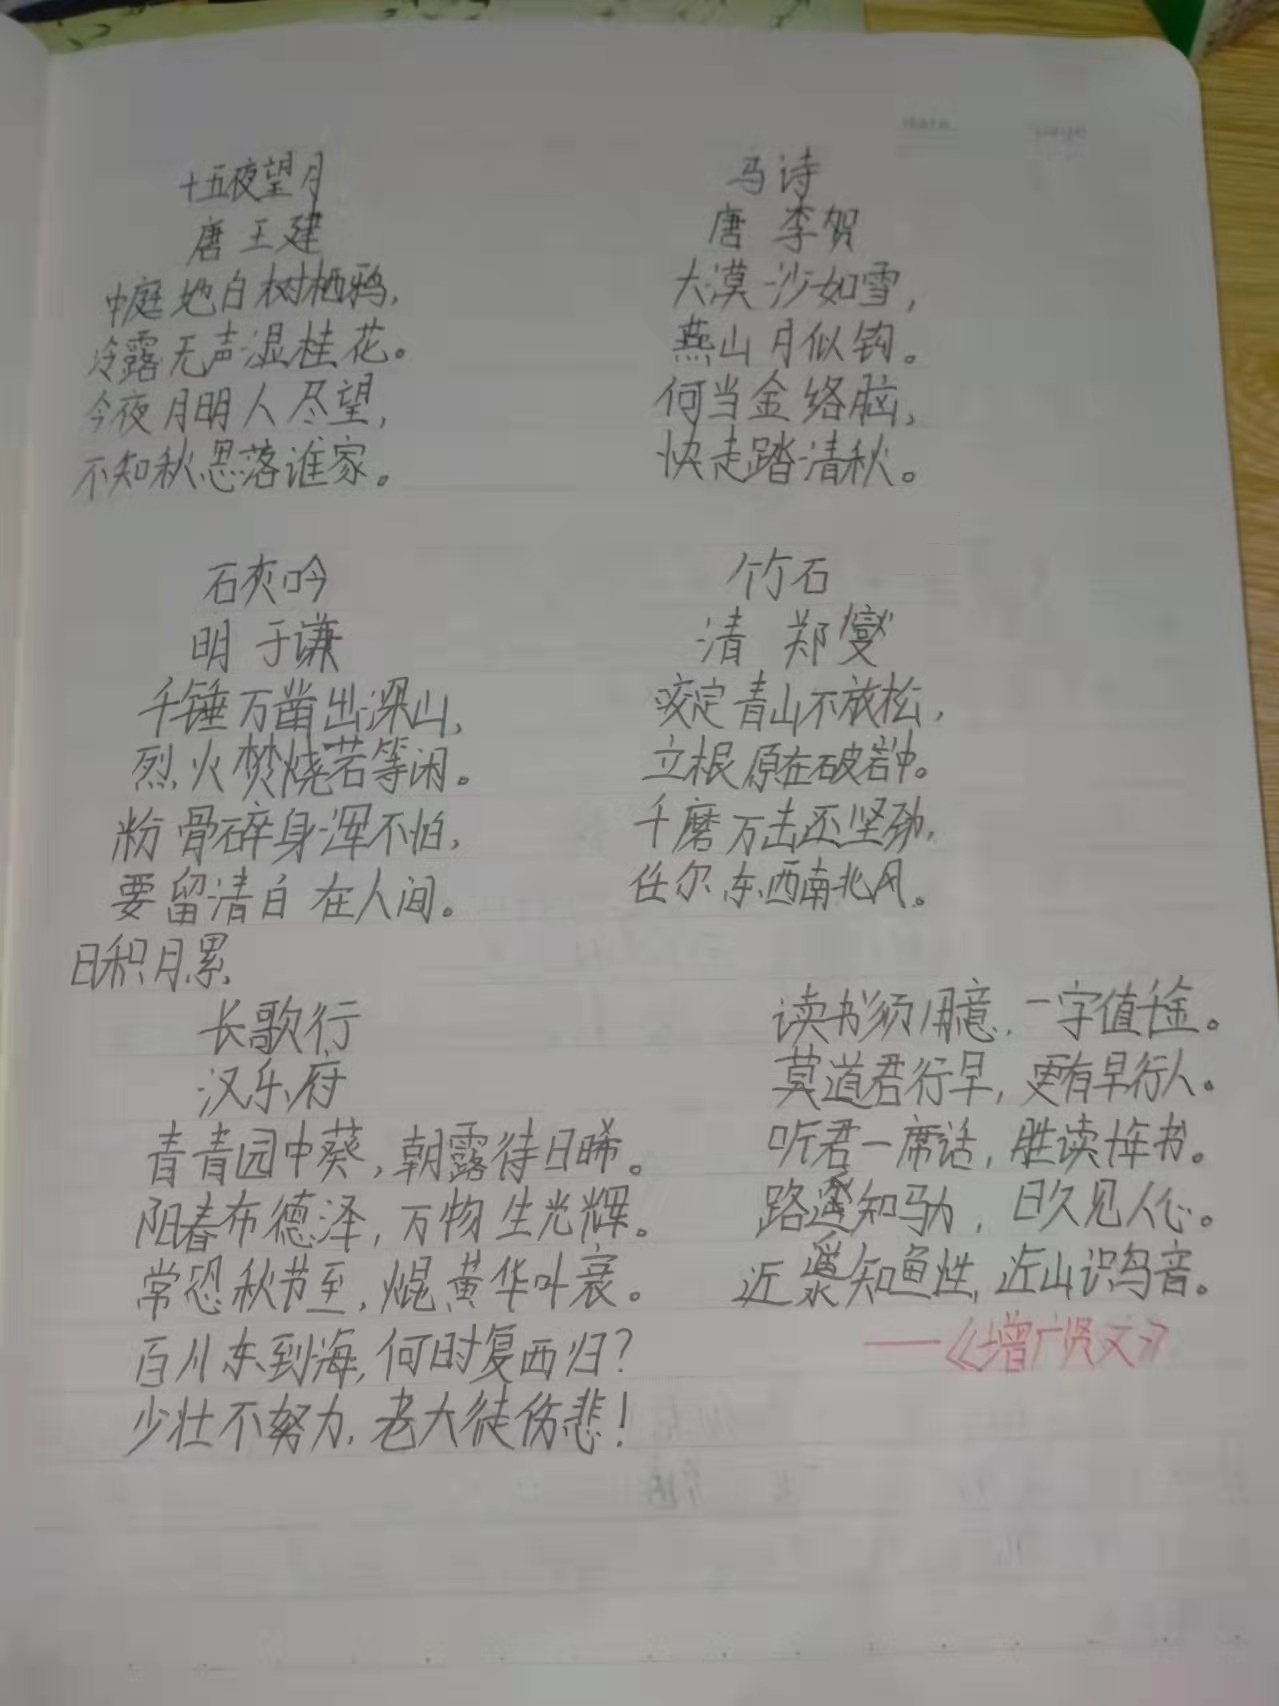 十五夜望月
唐 王建
中庭地白树栖鸦，
冷露无声湿桂花。
今夜月明人尽望，
不知秋思落谁家。
马诗
唐 李贺
大漠沙如雪，
燕山月似钩。
何当金络脑，
快走踏清秋。
石灰吟
明 于谦
千锤万凿出深山，
烈火焚烧若等闲。
粉骨碎身浑不怕，
要留清白在人间。
竹石
清 郑燮
咬定青山不放松，
立根原在破岩中。
千磨万击还坚劲，
任尔东西南北风。
日积月累
长歌行
汉乐府
青青园中葵，朝露待日晞。
阳春布德泽，万物生光辉。
常恐秋节至，焜黄华叶衰。
百川东到海，何时复西归？
少壮不努力，老大徒伤悲！
读书须用意，一字值千金。
莫道君行早，更有早行人。
听君一席话，胜读十年书。
路遥知马力，日久见人心。
近水知鱼性，近山识鸟音。
——《增广贤文》